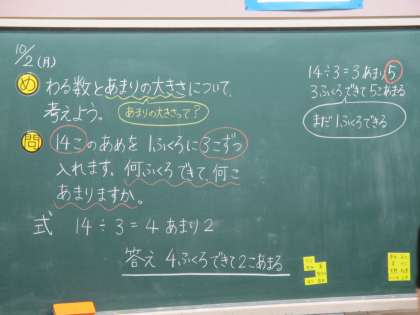 10/2(月)
め わる数とあまりの大きさについて、
考えよう。 あまりの大きさって?
問 14このあめを1ふくろに3こずつ
入れます。何ふくろできて、何こ
あまりますか。
式 14÷3=4あまり2
答え 4ふくろできて2こあまる
14÷3=3あまり5
3ふくろできて5こあまる
まだ1ふくろできる